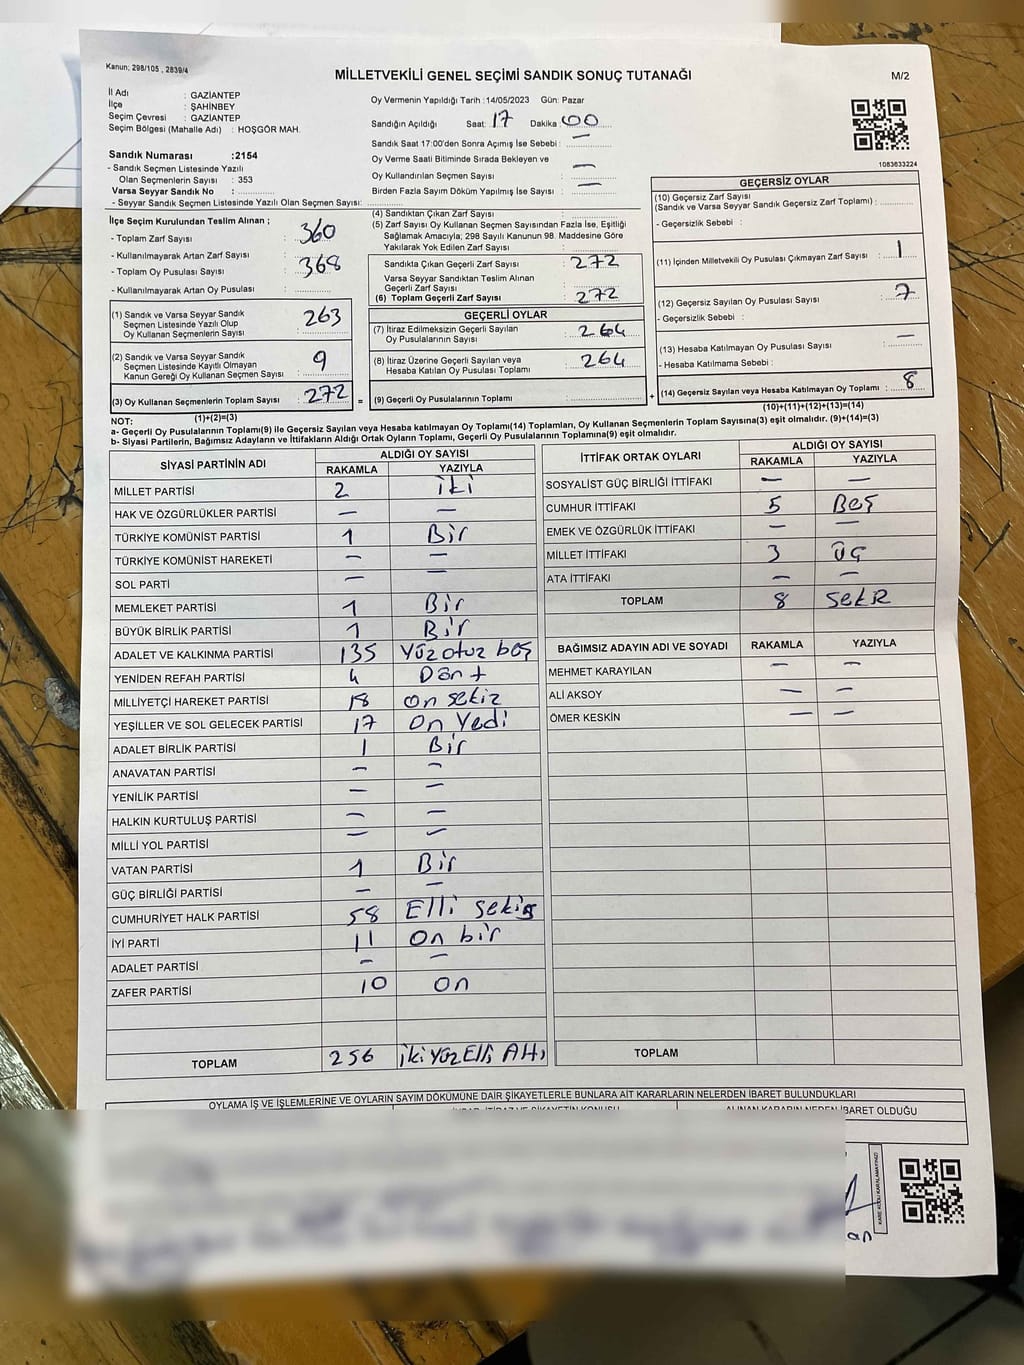 Kanun; 298/105 , 2839/4
MİLLETVEKİLİ GENEL SEÇİMİ SANDIK SONUÇ TUTANAĞI
M/2
İl Adı : GAZİANTEP
İlçe : ŞAHİNBEY
Seçim Çevresi : GAZİANTEP
Seçim Bölgesi (Mahalle Adı) : HOŞGÖR MAH.
Sandık Numarası :2154
- Sandık Seçmen Listesinde Yazılı
Olan Seçmenlerin Sayısı : 353
Varsa Seyyar Sandık No :
- Seyyar Sandık Seçmen Listesinde Yazılı Olan Seçmen Sayısı:
Oy Vermenin Yapıldığı Tarih :14/05/2023 Gün: Pazar
Sandığın Açıldığı Saat: 17 Dakika: 00
Sandık Saat 17:00'den Sonra Açımış İse Sebebi : —
Oy Verme Saati Bitiminde Sırada Bekleyen ve
Oy Kullandırılan Seçmen Sayısı : —
Birden Fazla Sayım Döküm Yapılmış İse Sayısı : —
1083633224
İlçe Seçim Kurulundan Teslim Alınan ;
- Toplam Zarf Sayısı : 360
- Kullanılmayarak Artan Zarf Sayısı :
- Toplam Oy Pusulası Sayısı : 368
- Kullanılmayarak Artan Oy Pusulası :
(1) Sandık ve Varsa Seyyar Sandık
Seçmen Listesinde Yazılı Olup
Oy Kullanan Seçmenlerin Sayısı : 263
(2) Sandık ve Varsa Seyyar Sandık
Seçmen Listesinde Kayıtlı Olmayan
Kanun Gereği Oy Kullanan Seçmen Sayısı : 9
(3) Oy Kullanan Seçmenlerin Toplam Sayısı : 272 =
(1)+(2)=(3)
(4) Sandıktan Çıkan Zarf Sayısı :
(5) Zarf Sayısı Oy Kullanan Seçmen Sayısından Fazla İse, Eşitliği
Sağlamak Amacıyla; 298 Sayılı Kanunun 98. Maddesine Göre
Yakılarak Yok Edilen Zarf Sayısı :
Sandıkta Çıkan Geçerli Zarf Sayısı : 272
Varsa Seyyar Sandıktan Teslim Alınan
Geçerli Zarf Sayısı :
(6) Toplam Geçerli Zarf Sayısı : 272
GEÇERLİ OYLAR
(7) İtiraz Edilmeksizin Geçerli Sayılan
Oy Pusulalarının Sayısı : 264
(8) İtiraz Üzerine Geçerli Sayılan veya
Hesaba Katılan Oy Pusulası Toplamı : 264
(9) Geçerli Oy Pusulalarının Toplamı : +
GEÇERSİZ OYLAR
(10) Geçersiz Zarf Sayısı
(Sandık ve Varsa Seyyar Sandık Geçersiz Zarf Toplamı) :
- Geçersizlik Sebebi :
(11) İçinden Milletvekili Oy Pusulası Çıkmayan Zarf Sayısı : 1
(12) Geçersiz Sayılan Oy Pusulası Sayısı : 7
- Geçersizlik Sebebi :
(13) Hesaba Katılmayan Oy Pusulası Sayısı : —
- Hesaba Katılmama Sebebi :
(14) Geçersiz Sayılan veya Hesaba Katılmayan Oy Toplamı : 8
(10)+(11)+(12)+(13)=(14)
NOT:
a- Geçerli Oy Pusulasının Toplamı(9) ile Geçersiz Sayılan veya Hesaba katılmayan Oy Toplamı(14) Toplamları, Oy Kullanan Seçmenlerin Toplam Sayısına(3) eşit olmalıdır. (9)+(14)=(3)
b- Siyasi Partilerin, Bağımsız Adayların ve İttifakların Aldığı Ortak Oyların Toplamı, Geçerli Oy Pusulalarının Toplamına(9) eşit olmalıdır.
SİYASİ PARTİNİN ADI ALDIĞI OY SAYISI
RAKAMLA YAZIYLA
MİLLET PARTİSİ 2 iki
HAK VE ÖZGÜRLÜKLER PARTİSİ — —
TÜRKİYE KOMÜNİST PARTİSİ 1 Bir
TÜRKİYE KOMÜNİST HAREKETİ — —
SOL PARTİ — —
MEMLEKET PARTİSİ 1 Bir
BÜYÜK BİRLİK PARTİSİ 1 Bir
ADALET VE KALKINMA PARTİSİ 135 Yüz otuz beş
YENİDEN REFAH PARTİSİ 4 Dört
MİLLİYETÇİ HAREKET PARTİSİ 18 on sekiz
YEŞİLLER VE SOL GELECEK PARTİSİ 17 On Yedi
ADALET BİRLİK PARTİSİ 1 Bir
ANAVATAN PARTİSİ — —
YENİLİK PARTİSİ — —
HALKIN KURTULUŞ PARTİSİ — —
MİLLİ YOL PARTİSİ — —
VATAN PARTİSİ 1 Bir
GÜÇ BİRLİĞİ PARTİSİ — —
CUMHURİYET HALK PARTİSİ 58 Elli sekiz
İYİ PARTİ 11 On bir
ADALET PARTİSİ — —
ZAFER PARTİSİ 10 On
TOPLAM 256 iki Yüz Elli Altı
İTTİFAK ORTAK OYLARI ALDIĞI OY SAYISI
RAKAMLA YAZIYLA
SOSYALİST GÜÇ BİRLİĞİ İTTİFAKI — —
CUMHUR İTTİFAKI 5 Beş
EMEK VE ÖZGÜRLÜK İTTİFAKI — —
MİLLET İTTİFAKI 3 Üç
ATA İTTİFAKI — —
TOPLAM 8 sekiz
BAĞIMSIZ ADAYIN ADI VE SOYADI RAKAMLA YAZIYLA
MEHMET KARAYILAN — —
ALİ AKSOY — —
ÖMER KESKİN — —
TOPLAM
OYLAMA İŞ VE İŞLEMLERİNE VE OYLARIN SAYIM DÖKÜMÜNE DAİR ŞİKAYETLERLE BUNLARA AİT KARARLARIN NELERDEN İBARET BULUNDUKLARI
ALINAN KARARIN NEDEN İBARET OLDUĞU